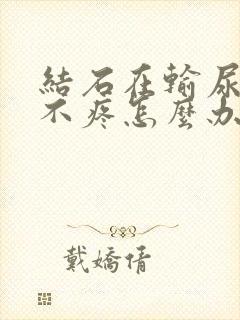 結石在輸尿
不疼怎麼办
戴嬌倩